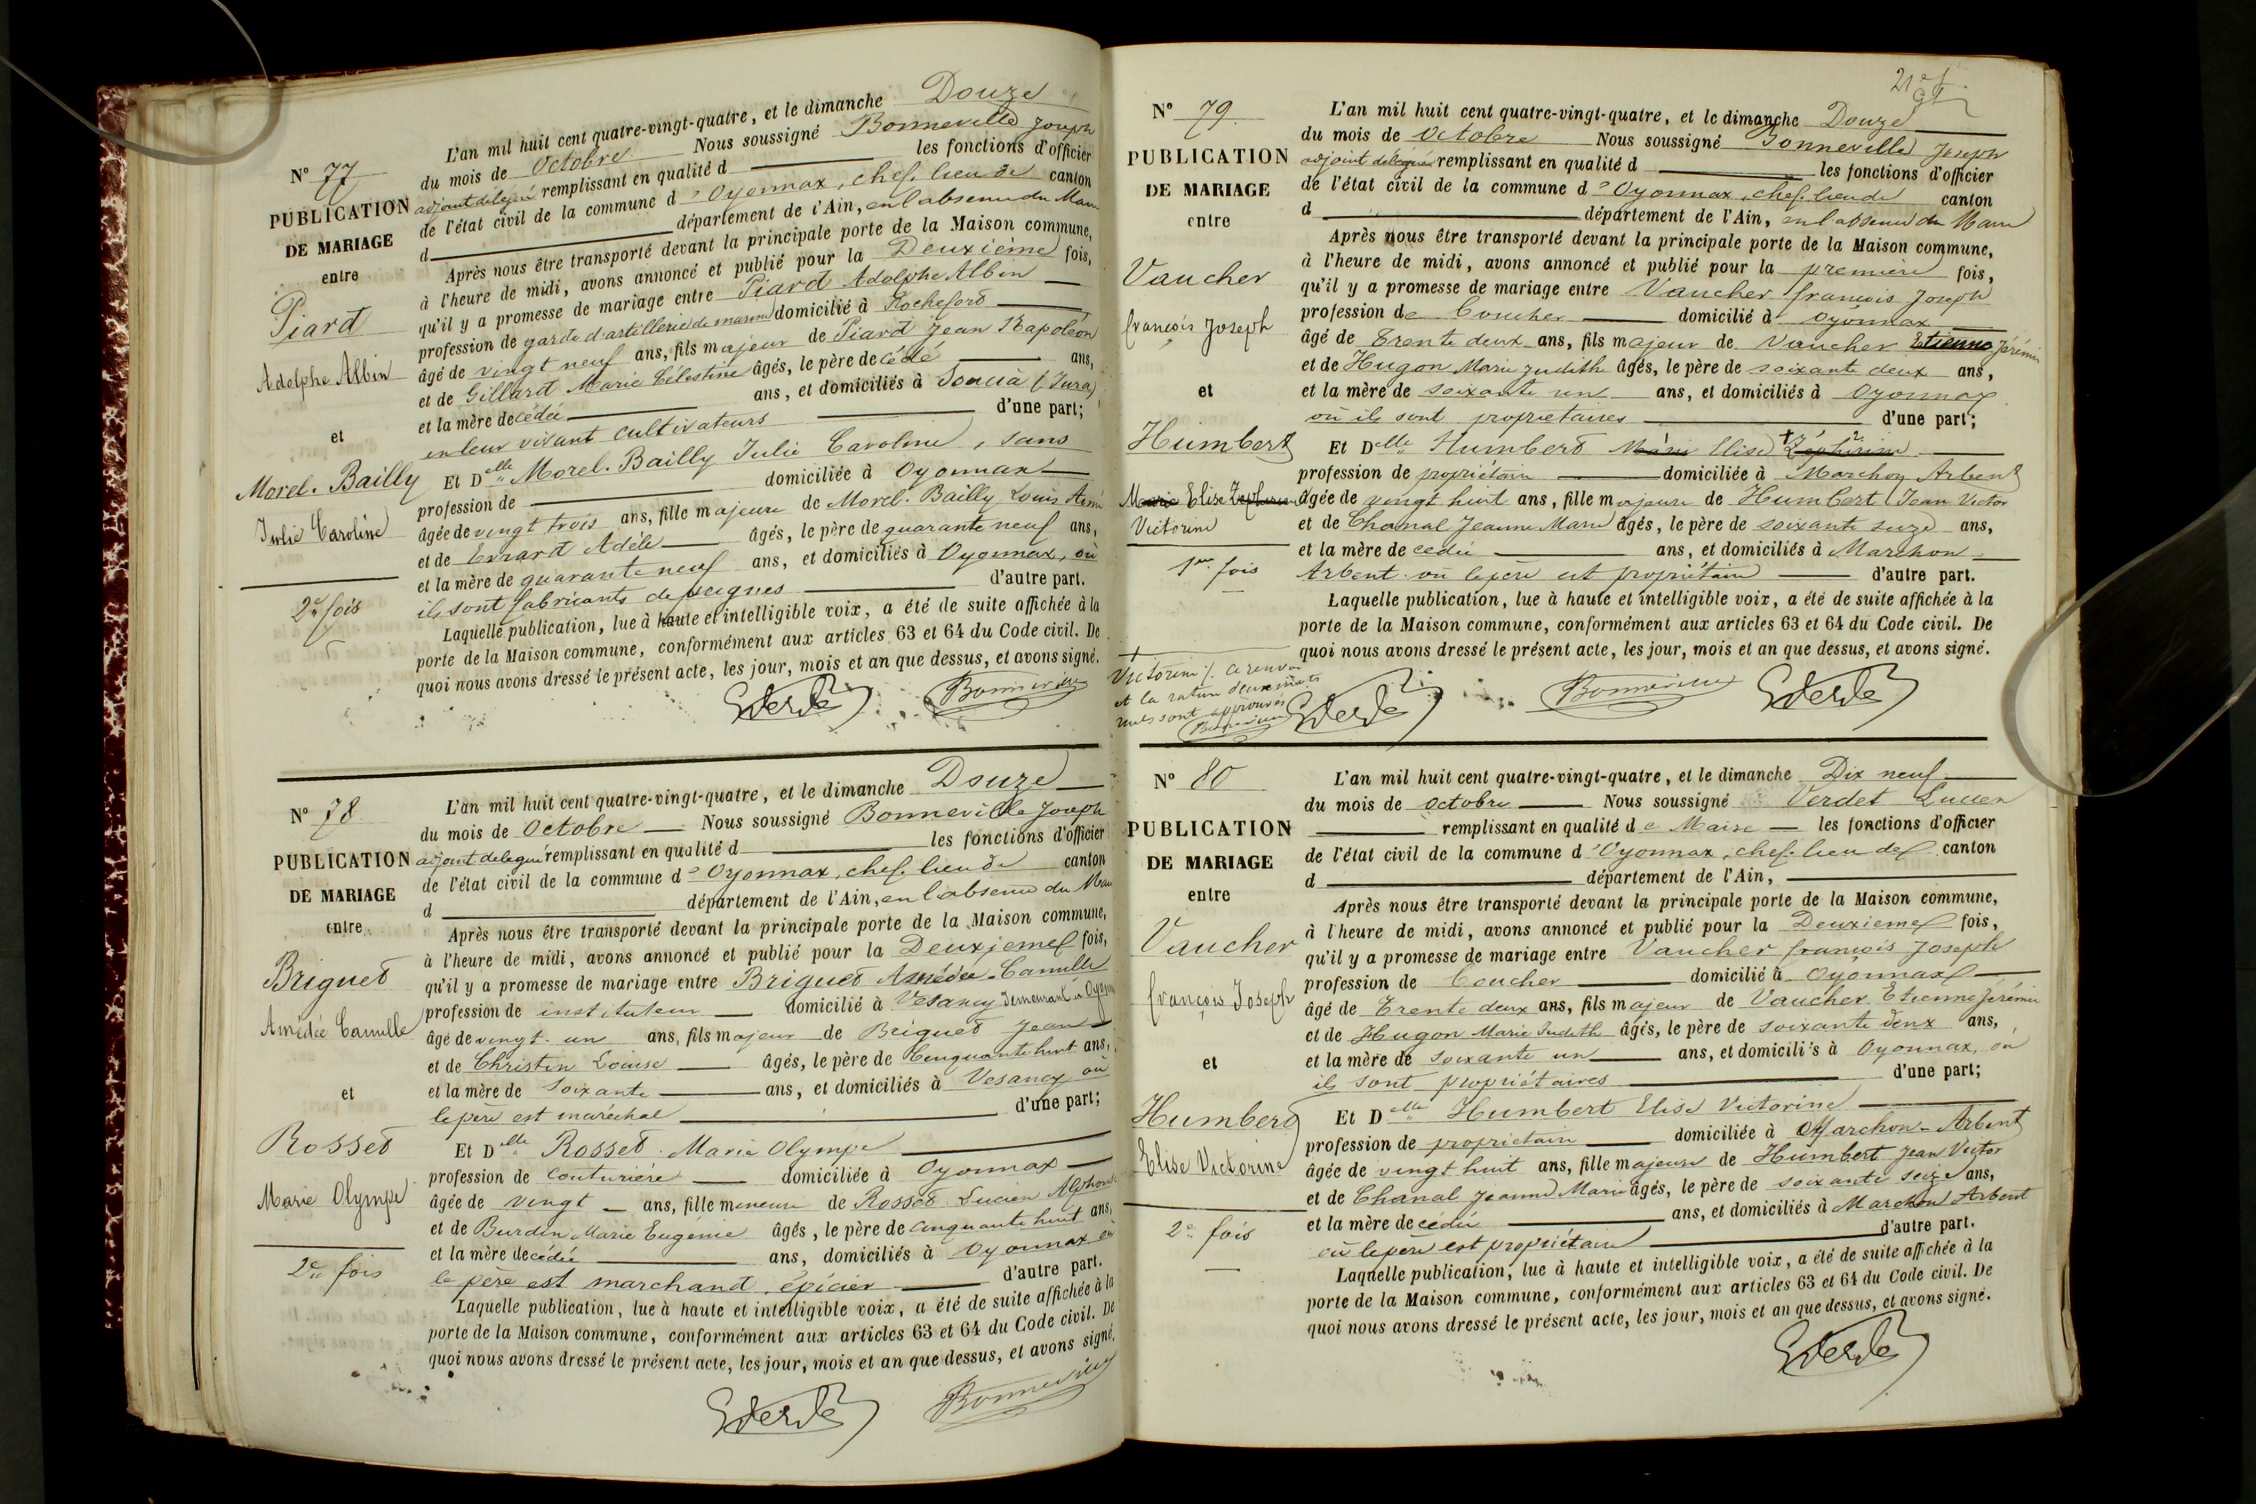 N° 77
PUBLICATION
DE MARIAGE
entre
Piard
Adolphe Albin
et
Morel-Bailly
Julie Caroline
2e fois
L'an mil huit cent quatre-vingt-quatre, et le dimanche Douze
du mois de Octobre Nous soussigné Bonneville Joseph
adjoint délégué remplissant en qualité d les fonctions d'officier
de l'état civil de la commune d'Oyonnax, chef-lieu de canton
d département de l'Ain, en l'absence du Maire
Après nous être transporté devant la principale porte de la Maison commune,
à l'heure de midi, avons annoncé et publié pour la Deuxième fois,
qu'il y a promesse de mariage entre Piard Adolphe Albin
profession de garde d'artillerie de marine domicilié à Rochefort
âgé de vingt neuf ans, fils majeur de Piard Jean Napoléon
et de Gillard Marie Célestine âgés, le père décédé ans,
et la mère décédée ans, et domiciliés à Soucia (Jura)
en leur vivant cultivateurs d'une part;
Et Delle Morel-Bailly Julie Caroline, sans
profession de domiciliée à Oyonnax
âgée de vingt trois ans, fille majeure de Morel-Bailly Louis Aimé
et de Evrard Adèle âgés, le père de quarante neuf ans,
et la mère de quarante neuf ans, et domiciliés à Oyonnax, où
ils sont fabricants de peignes d'autre part.
Laquelle publication, lue à haute et intelligible voix, a été de suite affichée à la
porte de la Maison commune, conformément aux articles 63 et 64 du Code civil. De
quoi nous avons dressé le présent acte, les jour, mois et an que dessus, et avons signé.
Bonneville
N° 78
PUBLICATION
DE MARIAGE
entre
Briguet
Amédée Camille
et
Rosset
Marie Olympe
2e fois
L'an mil huit cent quatre-vingt-quatre, et le dimanche Douze
du mois de Octobre Nous soussigné Bonneville Joseph
adjoint délégué remplissant en qualité d les fonctions d'officier
de l'état civil de la commune d'Oyonnax, chef-lieu de canton
d département de l'Ain, en l'absence du Maire
Après nous être transporté devant la principale porte de la Maison commune,
à l'heure de midi, avons annoncé et publié pour la Deuxième fois,
qu'il y a promesse de mariage entre Briguet Amédée-Camille
profession de instituteur domicilié à Vesancy demeurant à Oyonnax
âgé de vingt-un ans, fils majeur de Briguet Jean
et de Christin Louise âgés, le père de Cinquante huit ans,
et la mère de Soixante ans, et domiciliés à Vesancy où
le père est maréchal d'une part;
Et Delle Rosset Marie Olympe
profession de couturière domiciliée à Oyonnax
âgée de vingt ans, fille mineure de Rosset Lucien Alphonse
et de Burdin Marie Eugénie âgés, le père de cinquante huit ans,
et la mère décédée ans, domiciliés à Oyonnax où
le père est marchand épicier d'autre part.
Laquelle publication, lue à haute et intelligible voix, a été de suite affichée à la
porte de la Maison commune, conformément aux articles 63 et 64 du Code civil. De
quoi nous avons dressé le présent acte, les jour, mois et an que dessus, et avons signé.
Bonneville
21e f.
N° 79
PUBLICATION
DE MARIAGE
entre
Vaucher
françois Joseph
et
Humbert
Marie Elise Zéphirine
Victorine
1re fois
Victorine/. Ce renvoi
et la rature deux mots
nuls sont approuvés
Bonneville
L'an mil huit cent quatre-vingt-quatre, et le dimanche Douze
du mois de Octobre Nous soussigné Bonneville Joseph
adjoint délégué remplissant en qualité d les fonctions d'officier
de l'état civil de la commune d'Oyonnax, chef-lieu de canton
d département de l'Ain, en l'absence du Maire
Après nous être transporté devant la principale porte de la Maison commune,
à l'heure de midi, avons annoncé et publié pour la première fois,
qu'il y a promesse de mariage entre Vaucher françois Joseph
profession de Coucher domicilié à Oyonnax
âgé de Trente deux ans, fils majeur de Vaucher Etienne Jérémie
et de Hugon Marie Judith âgés, le père de soixante deux ans,
et la mère de soixante un ans, et domiciliés à Oyonnax
où ils sont propriétaires d'une part;
Et Delle Humbert Marie Elise Zéphirine
profession de propriétaire domiciliée à Marchon Arbent
âgée de vingt huit ans, fille majeure de Humbert Jean Victor
et de Chanal Jeanne Marie âgés, le père de soixante seize ans,
et la mère décédée ans, et domiciliés à Marchon
Arbent où le père est propriétaire d'autre part.
Laquelle publication, lue à haute et intelligible voix, a été de suite affichée à la
porte de la Maison commune, conformément aux articles 63 et 64 du Code civil. De
quoi nous avons dressé le présent acte, les jour, mois et an que dessus, et avons signé.
Bonneville
N° 80
PUBLICATION
DE MARIAGE
entre
Vaucher
françois Joseph
et
Humbert
Elise Victorine
2e fois
L'an mil huit cent quatre-vingt-quatre, et le dimanche Dix neuf
du mois de octobre Nous soussigné Verdet Lucien
remplissant en qualité de Maire les fonctions d'officier
de l'état civil de la commune d'Oyonnax, chef-lieu de canton
d département de l'Ain,
Après nous être transporté devant la principale porte de la Maison commune,
à l'heure de midi, avons annoncé et publié pour la Deuxième fois,
qu'il y a promesse de mariage entre Vaucher françois Joseph
profession de Coucher domicilié à Oyonnax
âgé de Trente deux ans, fils majeur de Vaucher Etienne Jérémie
et de Hugon Marie Judith âgés, le père de soixante deux ans,
et la mère de soixante un ans, et domiciliés à Oyonnax, où
ils sont propriétaires d'une part;
Et Delle Humbert Elise Victorine
profession de propriétaire domiciliée à Marchon-Arbent
âgée de vingt huit ans, fille majeure de Humbert Jean Victor
et de Chanal Jeanne Marie âgés, le père de soixante seize ans,
et la mère décédée ans, et domiciliés à Marchon Arbent
où le père est propriétaire d'autre part.
Laquelle publication, lue à haute et intelligible voix, a été de suite affichée à la
porte de la Maison commune, conformément aux articles 63 et 64 du Code civil. De
quoi nous avons dressé le présent acte, les jour, mois et an que dessus, et avons signé.